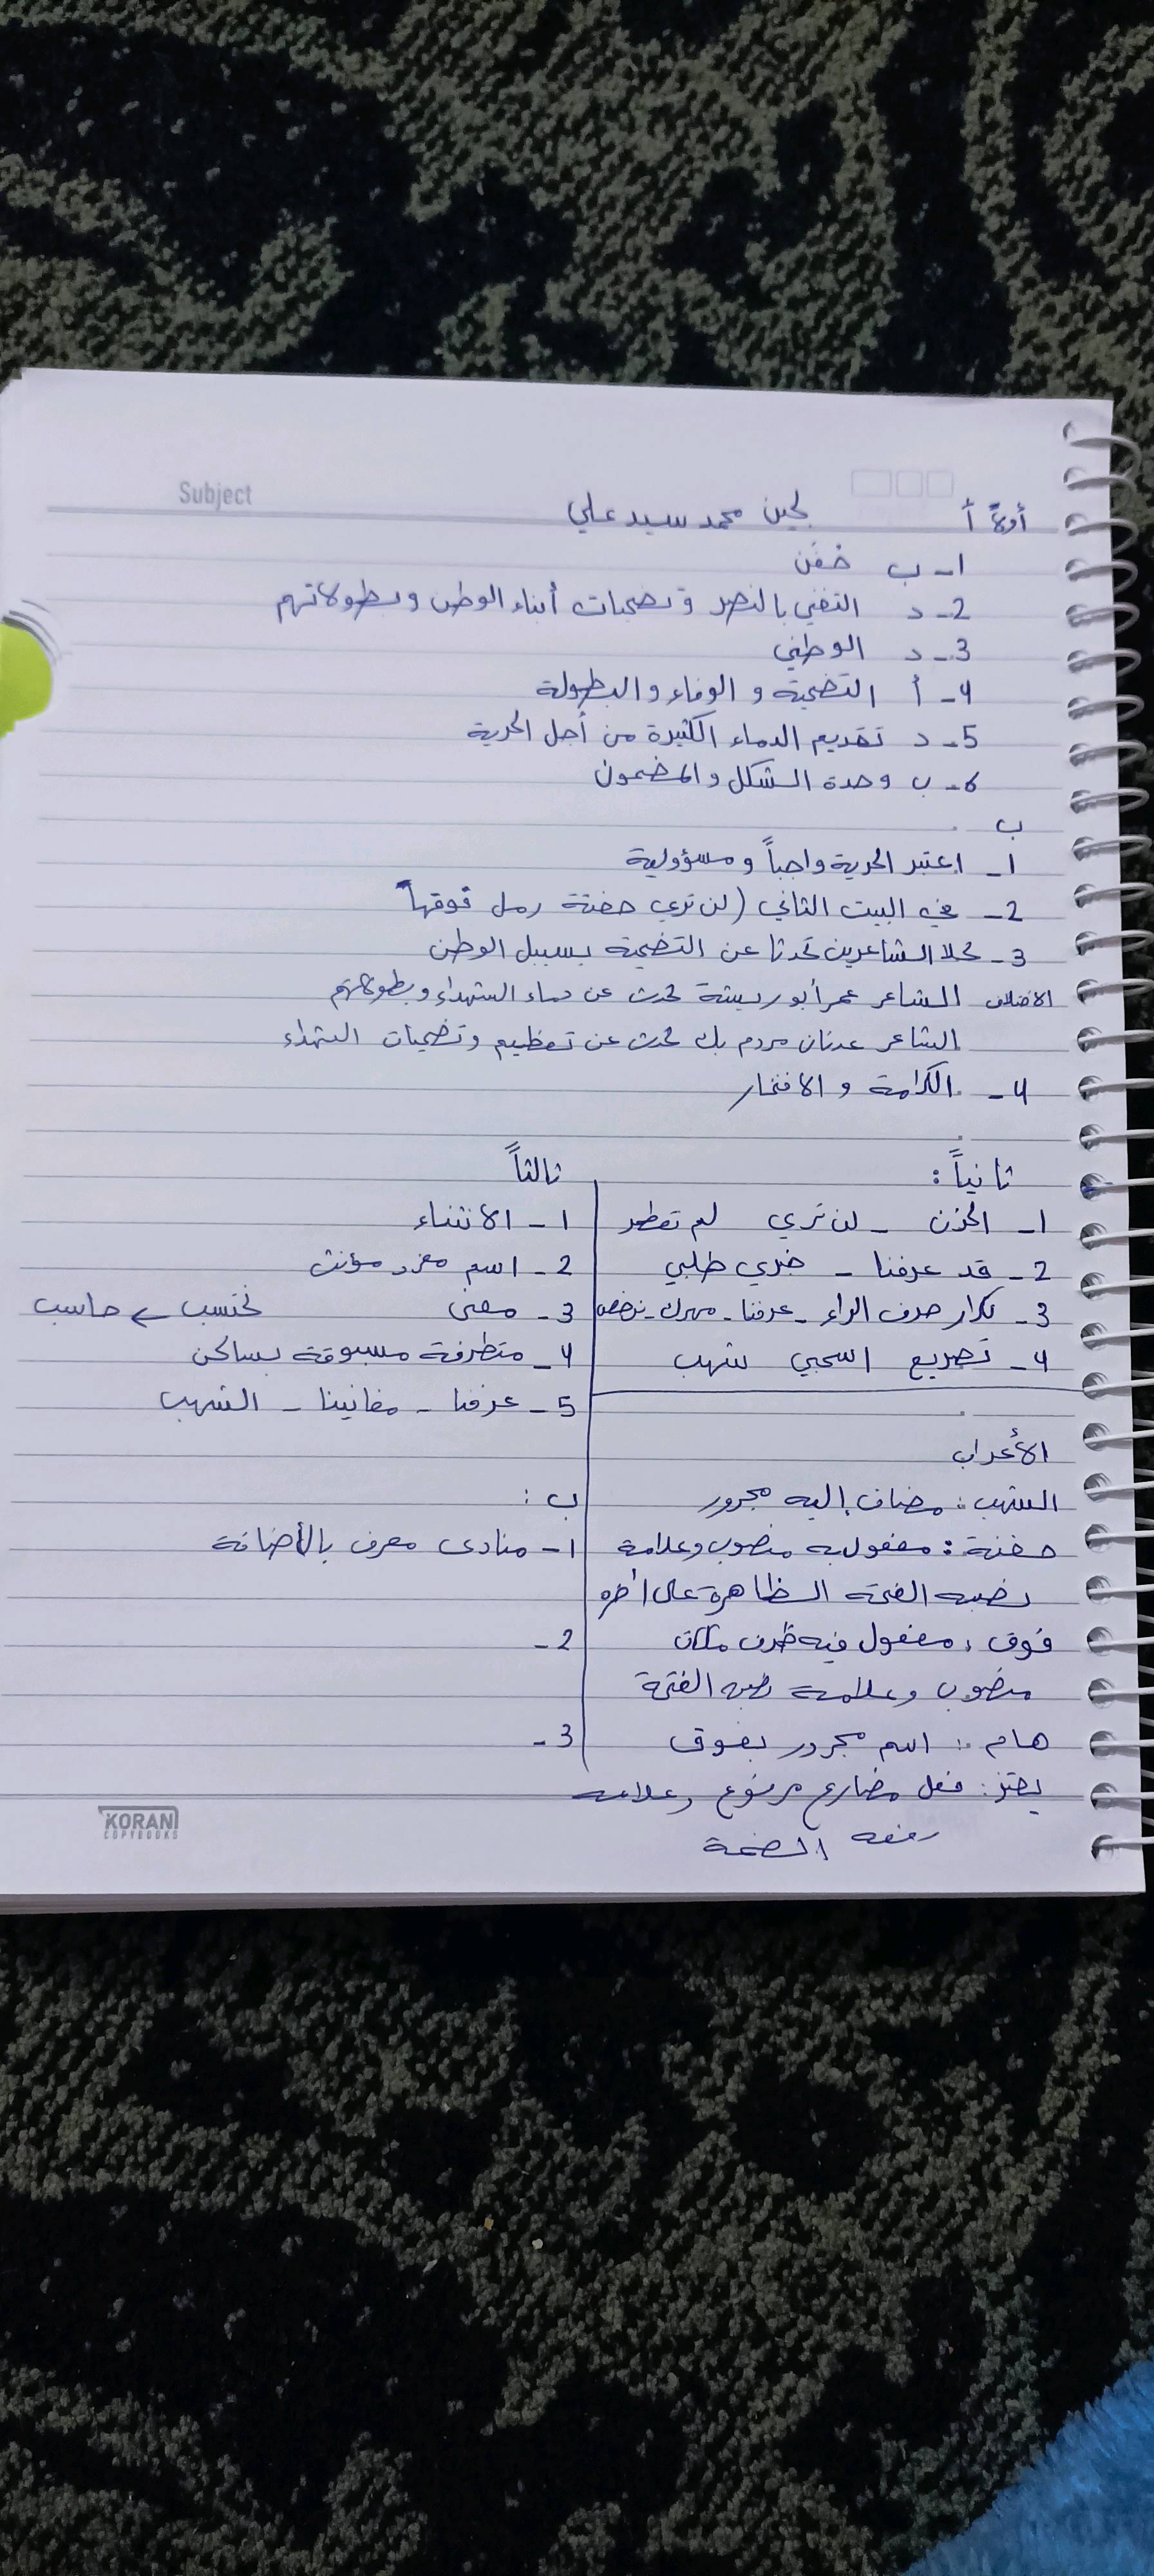 Subject
أولاً أ لجين محمد سيد علي
1- ب خفَن
2- د التغني بالنصر وتضحيات أبناء الوطن وبطولاتهم
3- د الوطني
4- أ التضحية و الوفاء و البطولة
5- د تقديم الدماء الكثيرة من أجل الحرية
6- ب وحدة الشكل والمضمون
ب
1- اعتبر الحرية واجباً ومسؤولية
2- في البيت الثاني (لن تري حفنة رمل فوقها
3- كلا الشاعرين تحدثا عن التضحية بسبيل الوطن
الاختلاف الشاعر عمر أبو ريشة تحدث عن دماء الشهداء وبطولاتهم
الشاعر عدنان مردم بك تحدث عن تعظيم وتضحيات الشهداء
4- الكرامة و الافتخار
ثانياً:
1- الحزن - لن تري لم تعطر
2- قد عرفنا - خبري طلبي
3- تكرار حرف الراء - عرفنا - مهرك - نرخص
4- تصريع اسحبي شهب
ثالثاً
1- الانتشاء
2- اسم مفرد مؤنث
3- معنى تحتسب ← حاسب
4- متطرفة مسبوقة بساكن
5- عرفنا - مغانينا - الشهب
الأعراب
الشهب: مضاف إليه مجرور
حفنة: مفعول به منصوب وعلامة
نصبه الفتحة الظاهرة على أخره
فوق: مفعول فيه ظرف مكان
منصوب وعلامة نصبه الفتحة
هام: اسم مجرور بفوق
يهتز: فعل مضارع مرفوع وعلامة
رفعه الضمة
ب:
1- منادى معرف بالأضافة
2-
3-
KORANI
COPYBOOKS